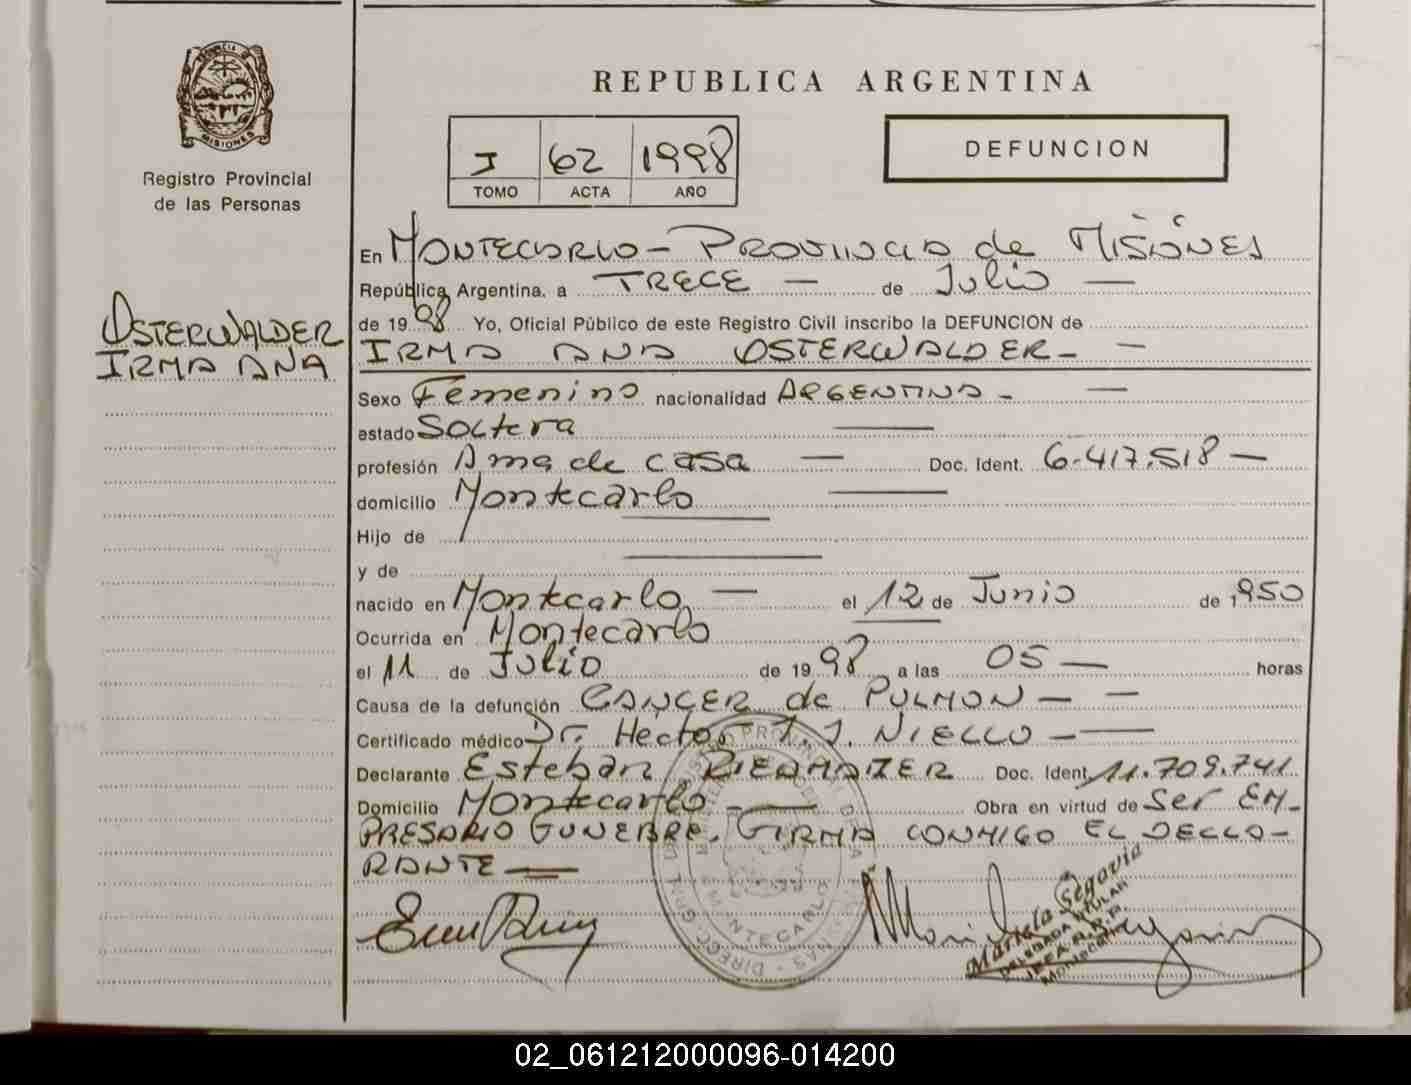 REPUBLICA ARGENTINA
PROVINCIA DE MISIONES
Registro Provincial
de las Personas
I 62 1998
TOMO ACTA AÑO
DEFUNCION
En MONTECARLO - PROVINCIA de MISIONES
República Argentina, a TRECE — de Julio —
de 1998 Yo, Oficial Público de este Registro Civil inscribo la DEFUNCION de
IRMA ANA OSTERWALDER - —
OSTERWALDER
IRMA ANA
Sexo Femenino nacionalidad ARGENTINA - —
estado Soltera —
profesión Ama de casa — Doc. Ident. 6.417.518 —
domicilio Montecarlo —
Hijo de —
y de —
nacido en Montecarlo — el 12 de Junio de 1950
Ocurrida en Montecarlo —
el 11 de Julio de 1998 a las 05 — horas
Causa de la defunción CANCER de PULMON - —
Certificado médico Dr. Hector J. J. NIELLO - —
Declarante Esteban Doc. Ident. 11.709.741
Domicilio Montecarlo - — Obra en virtud de Ser EM-
PRESARIO FUNEBRE. FIRMA CONMIGO EL DECLA-
RANTE —
Mariela Segovia
DELEGADA TITULAR
02_061212000096-014200